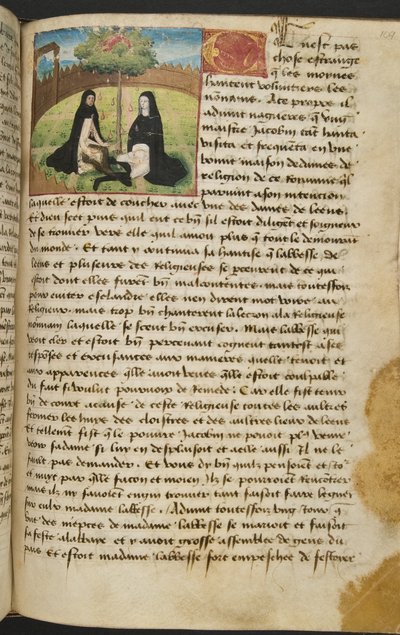 Ce nest pas
chose estrange
q̃ les moynes
hantent voluntiers les
nõnains. A ce propos il
aduint nagueres q̃ vng
maistre Jacobin tãt hanta
visita et frequẽta en vne
bonne maison de dames de
religion de ce royaume q̃l
paruint a son intencion
laquelle estoit de coucher auec vne des dames de leens
Et dieu scet puis quil eut ce bñ sil estoit diligẽt et soigneux
de se trouuer vers elle quil amoit plus q̃ tout le demourãt
du monde. Et tant y continua sa hantise q̃ labbesse de
leens et plusieurs des Religieuses se perceurent de ce qui
estoit dont elles furẽt bñ mal contentes mais toutesfoiz
pour euiter esclandre elles nen dirent mot voire au
Religieux mais trop bñ chanterent la lecon a la Religieuse
nonnain laquelle se sceut bñ excuser. Mais labbesse qui
veoit cler et estoit bñ perceuant cogneut tantost a ses
respõses et excusances aux manieres quelle tenoit et
aux apparences q̃lle auoit veues q̃lle estoit coulpable
du fait si voulut pourueoir de Remede. Car elle fist tenir
bñ de court a cause de ceste Religieuse toutes les aultres
fermer les huys des cloistres et des aultres lieux de leens
Et tellemẽt fist q̃ le pouure Jacobin ne pouoit plꝰ venir
veoir sa dame si luy en desplaisoit et a elle aussi Il ne le
fault pas demander. Et vous dy bñ quilz pensoient
et nuyt par q̃lle facon et moien Ilz se pourroient Rencõtrer
mais ilz ny sauoiẽt engin trouuer tant faisoit faire le guet
sur eulx madame labbesse. Aduint toutesfoiz vng Jour q̃
vne des niepces de madame labbesse se marioit et faisoit
sa feste a labbaye et y auoit grosse assemblee de gens du
pais Et estoit madame labbesse fort empeschee de festoier